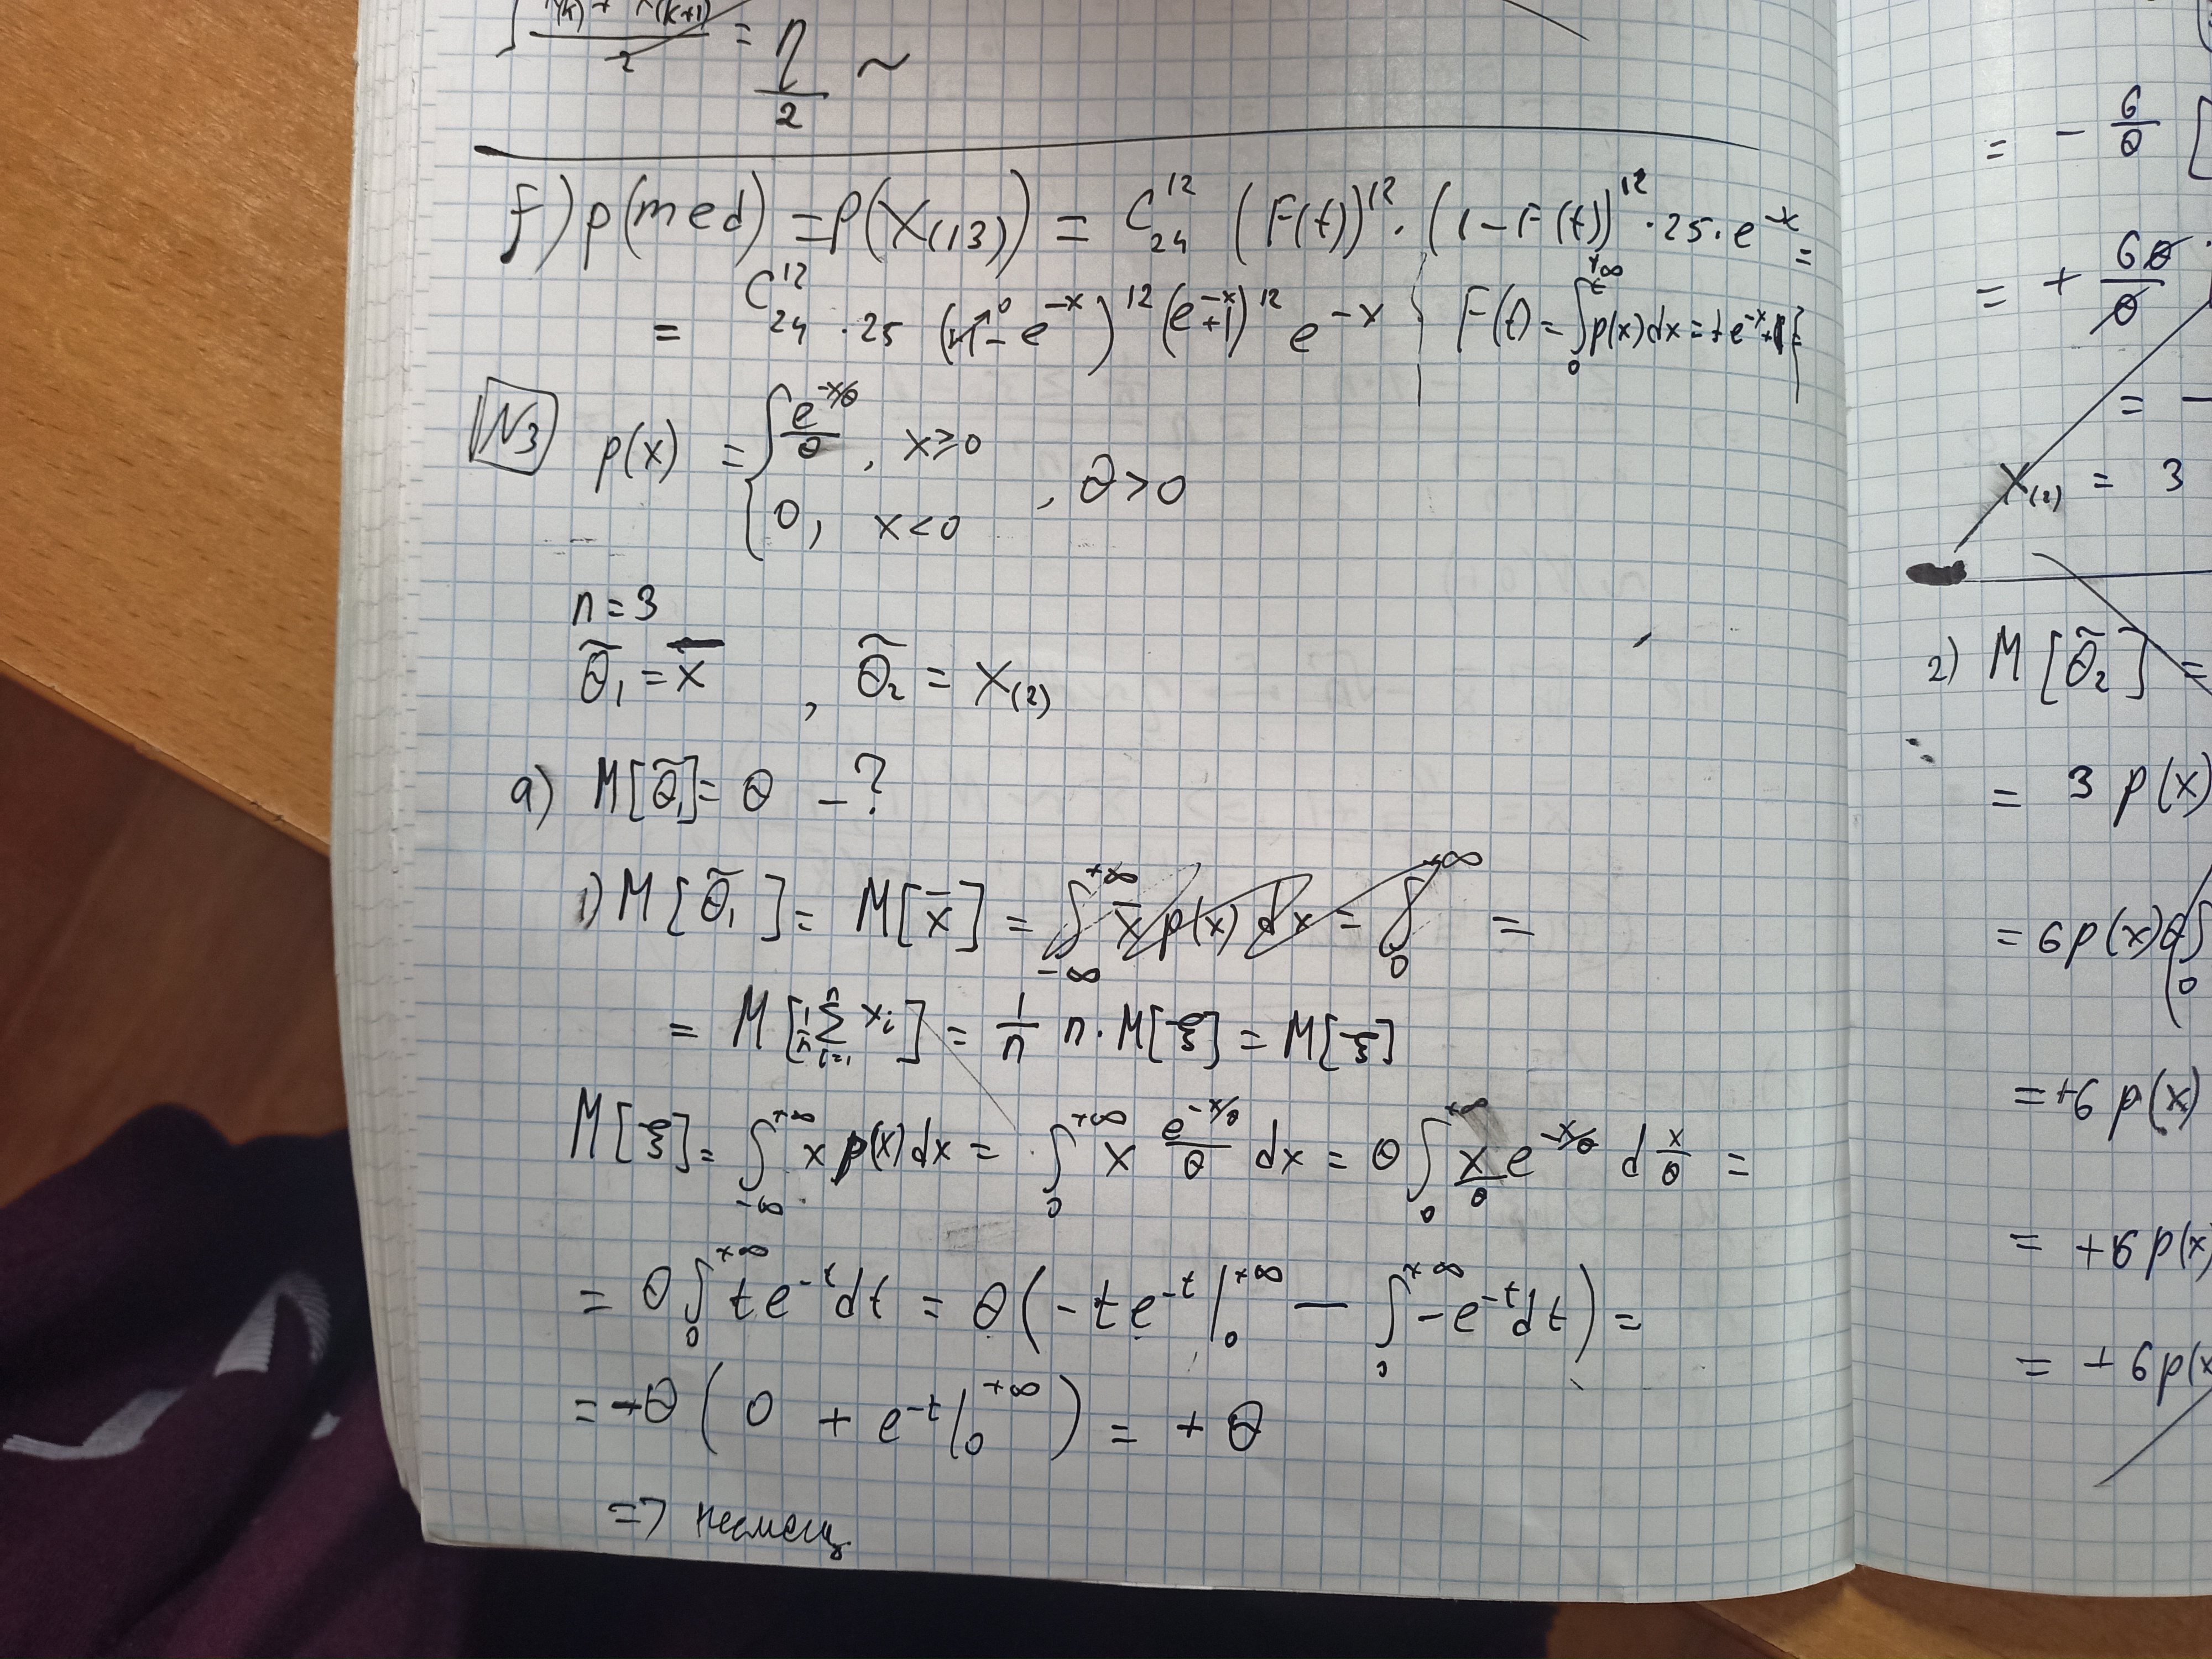 = η/2 ~
f) p(med) = p(X₍₁₃₎) = C₂₄¹² (F(t))¹² · (1 - F(t))¹² · 25 · e⁻ˣ =
= C₂₄¹² · 25 ( - e⁻ˣ)¹² (e⁻ˣ + 1)¹² e⁻ˣ { F(t) = ∫₀ p(x)dx = + e⁻ˣ + 1 }
N3 p(x) = { e^(-x/θ)/θ, x ≥ 0
0, x < 0 , θ > 0
n = 3
θ̃₁ = x̄ , θ̃₂ = X₍₂₎
a) M[θ̃₁] = θ - ?
1) M[θ̃₁] = M[x̄] = ∫_{-∞}^{+∞} x̄ p(x) dx = ∫₀^{+∞} =
= M[1/n ∑ᵢ₌₁ⁿ xᵢ] = 1/n n · M[ξ] = M[ξ]
M[ξ] = ∫_{-∞}^{+∞} x p(x) dx = ∫₀^{+∞} x e^(-x/θ)/θ dx = θ ∫₀^{+∞} x/θ e^(-x/θ) d x/θ =
= θ ∫₀^{+∞} t e⁻ᵗ dt = θ ( - t e⁻ᵗ |₀^{+∞} - ∫₀^{+∞} - e⁻ᵗ dt ) =
= -θ ( 0 + e⁻ᵗ |₀^{+∞} ) = + θ
=> несмещ
= - 6/θ [
= + 6θ/θ
= -
X₍₂₎ = 3
2) M[θ̃₂] =
= 3 p(x)
= 6 p(x) ∫₀
= +6 p(x)
= +6 p(x)
= +6 p(x